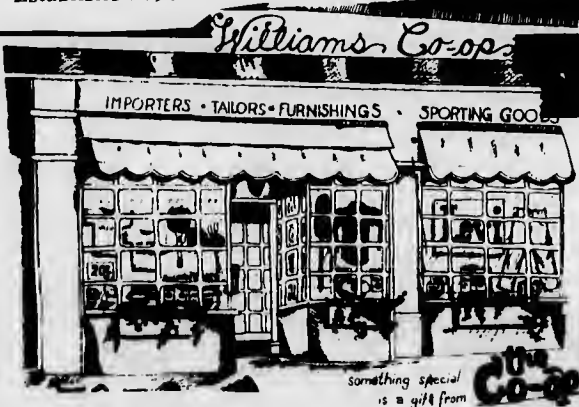 Williams Co-op
IMPORTERS • TAILORS • FURNISHINGS • SPORTING GOODS
something special
is a gift from
the
Co-op